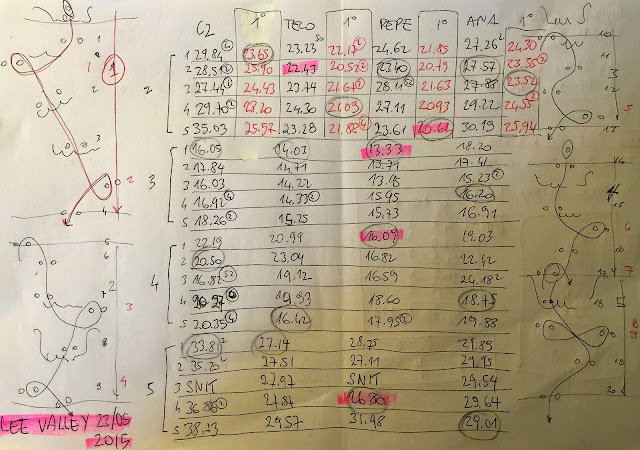 CZ 1° TERO 1° PEPE 1° ANA 1°
2
1 29.84 23.65 23.23 50 22.17 24.62 21.85 27.26 2 24.30
2 28.51 2 25.90 22.43 20.52 2 23.40 20.79 27.57 23.35 2
3 27.44 24.43 23.74 21.67 28.11 52 21.63 27.88 23.52
4 29.70 2 28.20 24.30 21.09 27.11 20.93 29.22 24.55 2
5 35.03 25.57 23.28 21.80 4 23.61 20.62 30.19 25.94
3
1 16.05 14.03 13.33 18.20
2 17.84 14.71 13.79 17.41
3 16.03 14.22 13.95 15.23 2
4 16.92 4 14.33 2 15.95 16.20
5 18.26 2 15.25 15.73 16.91
4
1 22.19 20.99 16.09 19.03
2 20.50 23.04 16.82 22.42
3 16.82 52 19.12 16.59 24.18 2
4 19.93 18.60 18.75
5 20.35 4 16.42 17.95 2 19.88
5
1 33.8 2 27.14 28.75 29.85
2 35.20 27.51 27.11 29.95
3 SNIT 27.97 SNIT 29.54
4 36.86 2 27.84 26.80 29.64
5 38.13 29.57 31.98 29.01
LEE VALLEY 23/05
2015